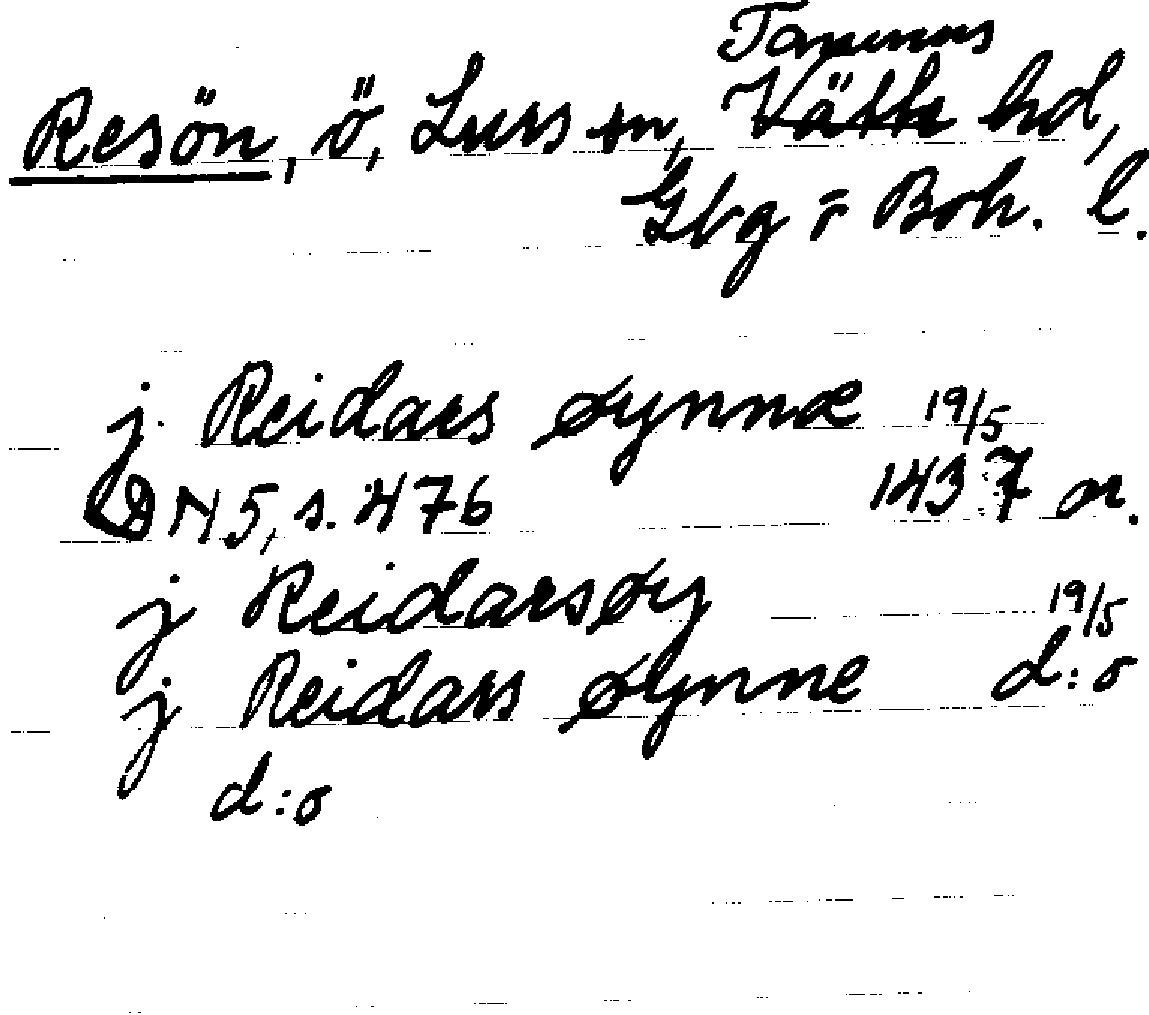 Tanums
Resön, ö, Lurs sn, Vätte hd,
Gbg o Boh. l.
j Reidars øynnæ 19/5
DN 5, s. 476 1437 or.
j Reidarsøy 19/5
j Reidars øynne d:o
d:o